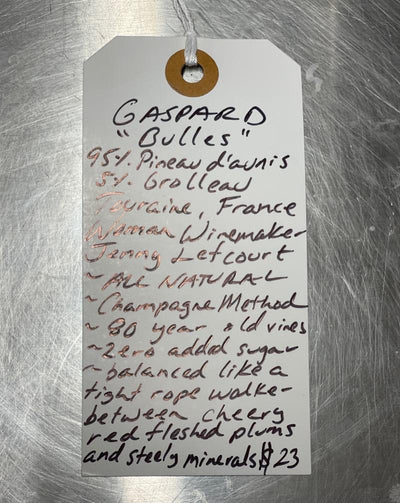 GASPARD
"Bulles"
95% Pineau d'aunis
5% Grolleau
Touraine, France
Woman Winemaker
Jenny Lefcourt
~ ALL NATURAL
~ Champagne Method
~ 80 year old vines
~ Zero added sugar
~ balanced like a
tight rope walker
between cheery
red fleshed plums
and steely minerals $23